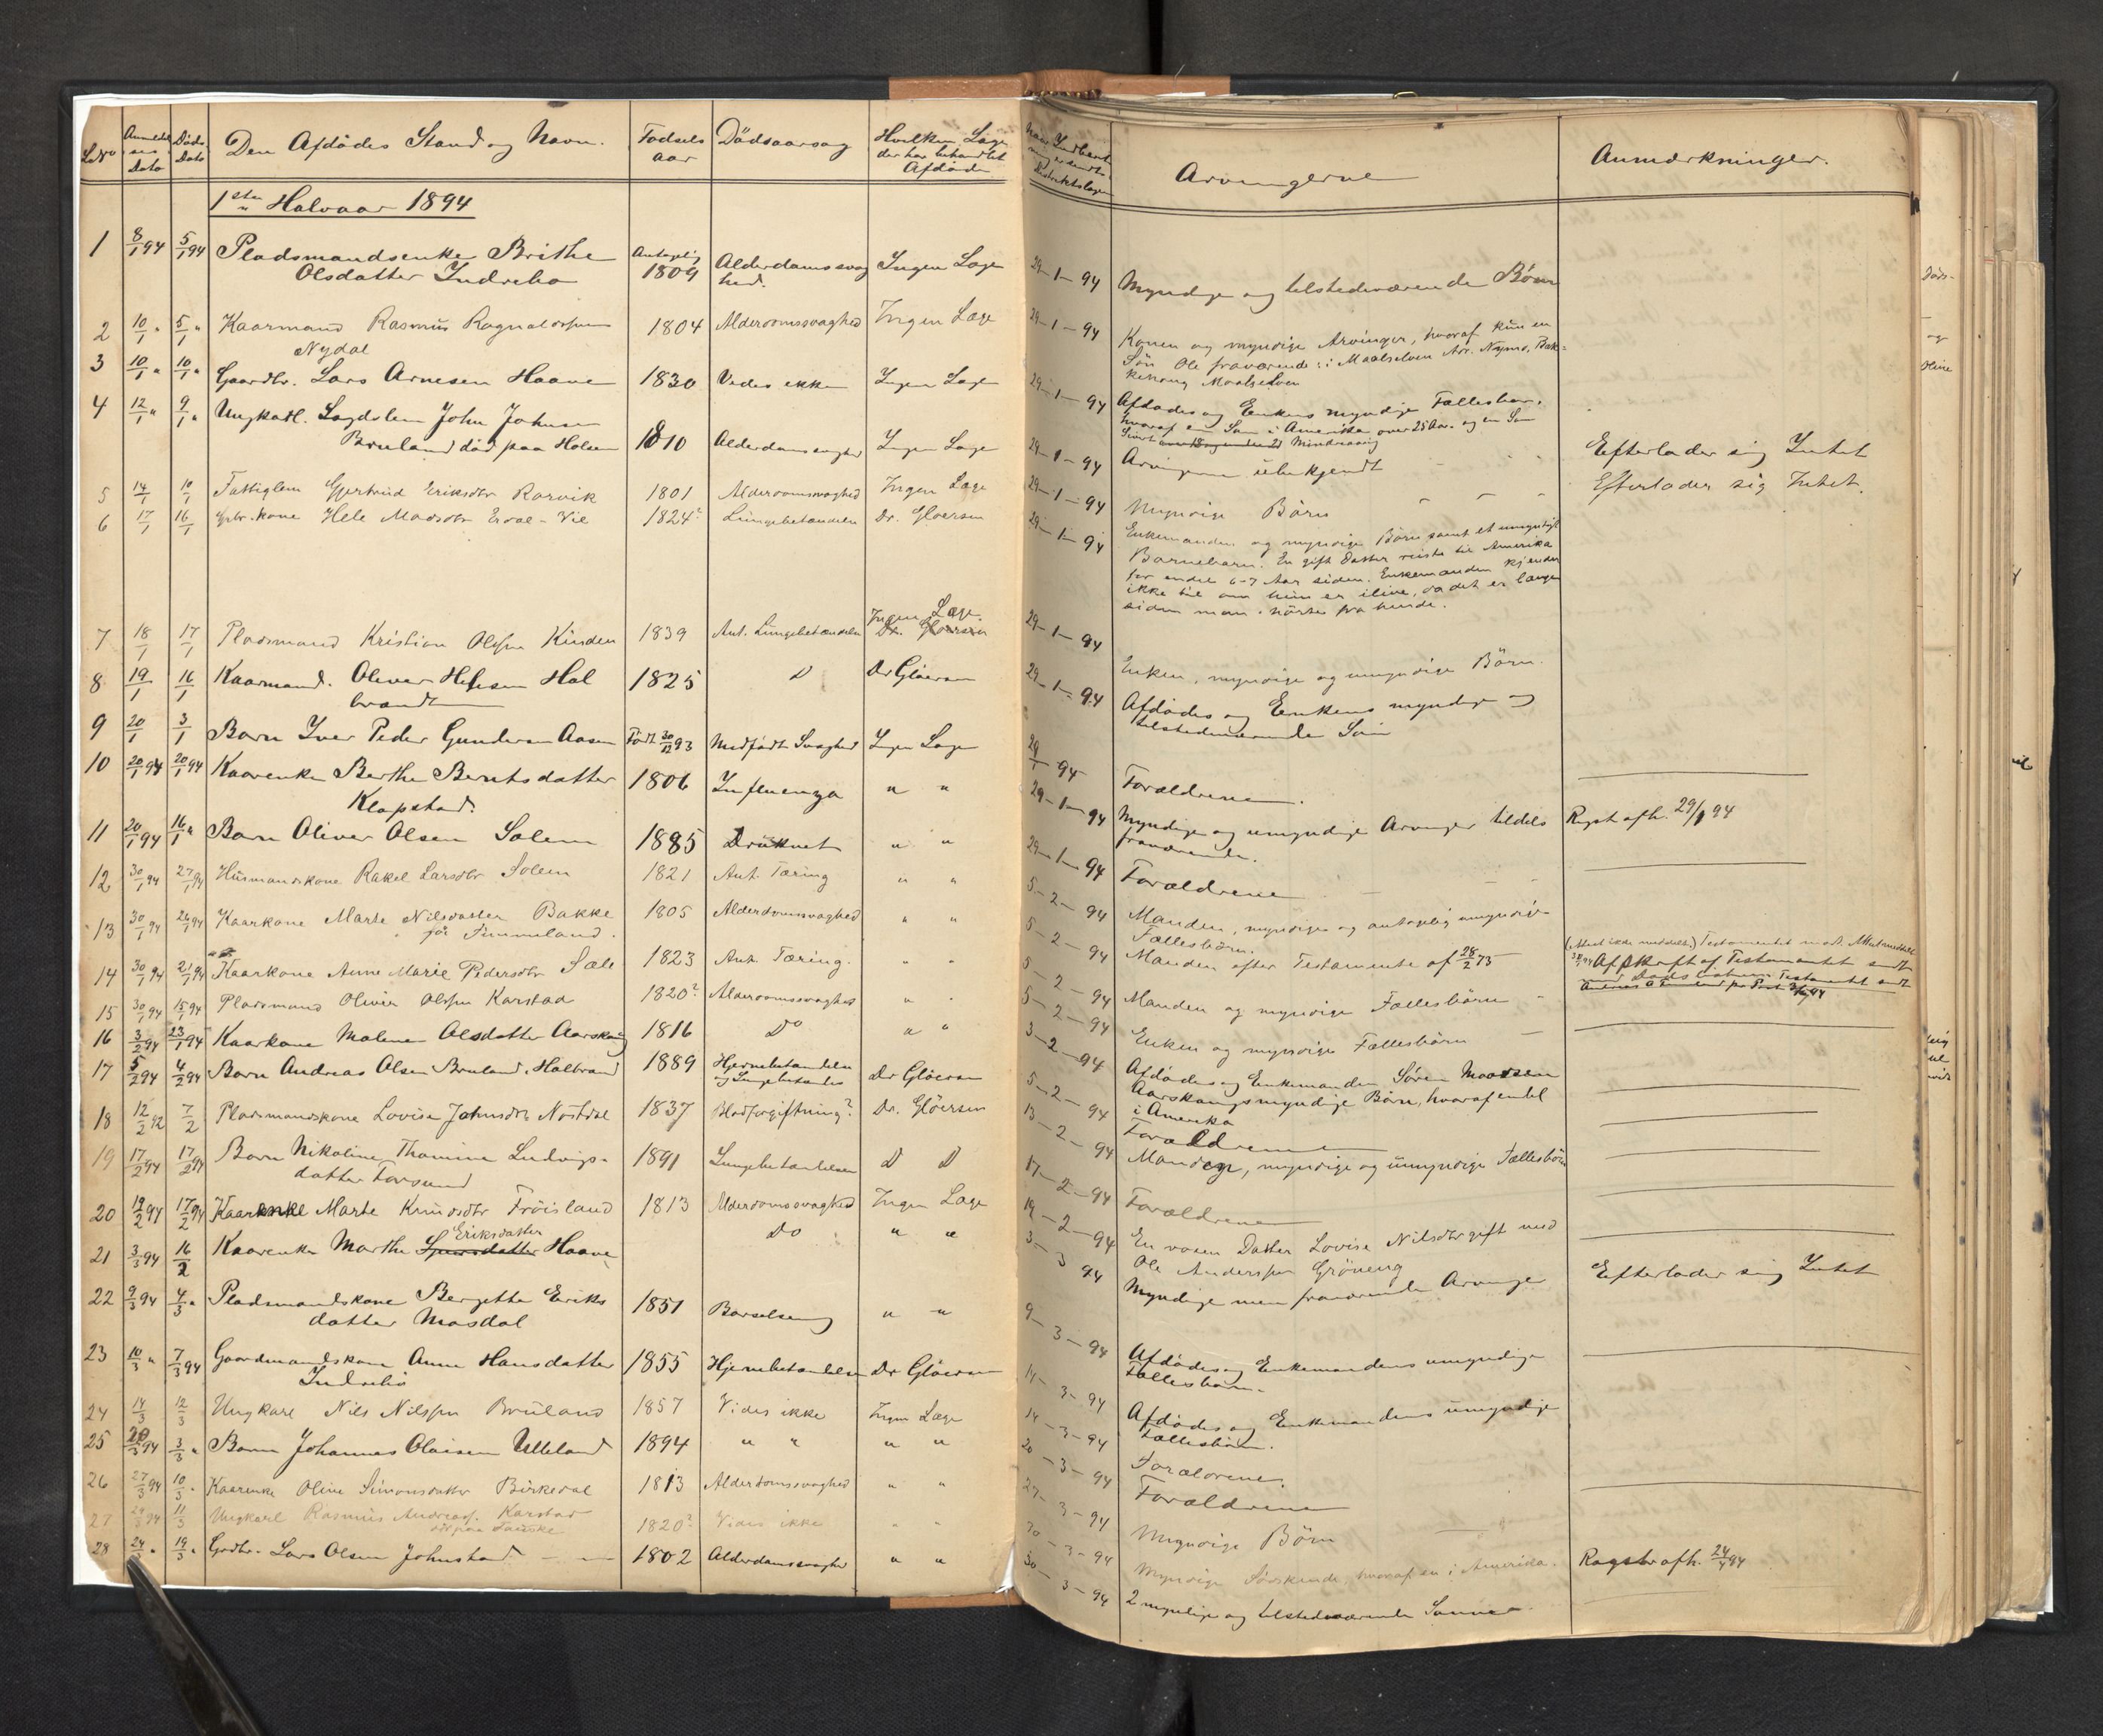 LNo Anmeldelses Dato Døds Dato Den Afdødes Stand og Navn. Fødselsaar Dødsaarsag Hvilken Læge der har behandlet Afdøde
1ste Halvaar 1894
1 8/1 94 5/1 94 Pladsmandsenke Brithe Antagelig 1809 Alderdomssvaghed. Ingen Læge
Olsdatter Indrebø
2 10/1 " 5/1 " Kaarmand Rasmus Ragnaldssen 1804 Alderdomssvaghed Ingen Læge
Nydal
3 10/1 " 10/1 " Gaardbr. Lars Arnesen Haave 1830 Vides ikke Ingen Læge
4 12/1 " 9/1 " Ungkarl. Lægdslem John Johnsen
Bruland død paa Holsen 1810 Alderdomssvaghed Ingen Læge
5 14/1 10/1 Fattiglem Gjertrud Eriksdtr Rørvik 1801 Alderdomssvaghed Ingen Læge
6 17/1 16/1 Gbr. kone Hele Madsdtr Erdal-Vie 1824? Lungebetændelse Dr. Gløersen
7 18/1 17/1 Pladsmand Kristian Olssen Kinden 1839 Ant. Lungebetændelse Ingen Læge Dr. Gloersen
8 19/1 16/1 Kaarmand. Oliver Helgesen Hal 1825 D Dr Gløersen
brandt
9 20/1 3/1 Barn Iver Peder Gundersen Aasen Født 30/12 93 Medfødt Svaghed Ingen Læge
10 20/1 94 20/1 94 Kaarenke Berthe Berntsdatter 1806 Influenza " "
Klopstad.
11 20/1 94 16/1 " Barn Oliver Olsen Solem 1885 Druknet " "
12 30/1 94 27/1 94 Husmandskone Rakel Larsdtr Solem 1821 Ant. Tæring " "
13 30/1 94 26/1 94 Kaarkone Marte Nilsdatter Bakke 1805 Alderdomssvaghed " "
paa Fimmeland.
14 30/1 94 21/1 94 Kaarkone Anne Marie Pedersdtr Sæle 1823 Ant. Tæring. " "
15 30/1 94 15/1 94 Pladsmand Oliver Olssen Karstad 1820? Alderdomssvaghed " "
16 3/2 94 23/1 94 Kaarkone Malene Olsdatter Aarskaug 1816 Do " "
17 5/2 94 4/2 94 Barn Andreas Olsen Bruland, Halbrand 1889 Hjernebetændelse og Lungebetændelse Dr Gløersen
18 12/2 92 7/2 Pladsmandskone Lovise Johnsdtr Nøstdal 1837 Blodforgiftning? Dr. Gløersen
19 17/2 94 17/2 94 Barn Nikoline Thomine Ludvigs- 1891 Lungebetændelse D D
datter Farsund
20 19/2 94 17/2 94 Kaarenke Marte Knudsdtr Frøisland 1813 Alderdomssvaghed Ingen Læge
Eriksdatter
21 3/3 94 16/2 Kaarenke Marthe Haave Do " "
22 9/3 94 4/3 " Pladsmandskone Bergitte Eriks 1851 Barselseng " "
datter Mosdal
23 10/3 " 7/3 94 Gaardmandskone Anne Hansdatter 1855 Hjernebetændelse Dr Gløersen
Indrebø
24 14/3 12/3 Ungkarl Nils Nilssen Bruland 1857 Vides ikke Ingen Læge
25 20/3 94 3/3 " Barn Johannes Olaisen Ulleland 1894 " " " "
26 27/3 94 10/3 " Kaarenke Oline Simonsdatter Birkedal 1813 Alderdomssvaghed " "
27 29/3 94 11/3 Ungkarl Rasmus Andreass. Karstad 1820? Vides ikke " "
død paa Fauske
28 29/3 " 19/3 " Grdbr. Lars Olsen Johnstad 1802 Alderdomssvaghed " "
Naar Indberetning er sendt Distriktslægen Arvingerne Anmærkninger.
29-1-94 Myndige og tilstedeværende Børn
29-1-94 Konen og myndige Arvinger, hvoraf kun en
Søn Ole fraværende i Maalselven Adr. Nymo, Bak-
kehaug Maalselven
29-1-94 Afdødes og Enkens myndige Fællesbørn,
hvoraf en Søn i Amerika over 25 Aar og en Søn
Sivert over 18 og under 21 Mindreaarig
29-1-94 Arvingerne ubekjendt Efterlader sig Intet
29-1-94 Myndige Børn Efterlader sig Intet.
29-1-94 Enkemanden og myndige Børn samt et umyndigt
Barnebarn. En gift Datter reiste til Amerika
for endel 6-7 Aar siden. Enkemanden kjender
ikke til om hun er ilive, da det er længe
siden man hørte fra hende.
29-1-94 Enken, myndige og umyndige Børn.
29-1-94 Afdødes og Enkens myndige og
tilstedeværende Søn
29/1 94 Forældrene.
29-1-94 Myndige og umyndige Arvinger tildels Regst afh. 29/1 94
fraværende.
29-1-94 Forældrene
5-2-94 Manden, myndige og antagelig umyndige
Fællesbørn.
5-2-94 Manden efter Testamente af 28/2 73 Afskrift af Testamentet sendt
5-2-94 Manden og myndige Fællesbørn
5-2-94 Enken og myndige Fællesbørn
3-2-94 Afdødes og Enkemanden Søren Madsen
Aarskaugs myndige Børn, hvoraf endel
i Amerika
5-2-94 Forældrene
13-2-94 Manden, myndige og umyndige Fællesbørn
17-2-94 Forældrene
19-2-94 En voxen Datter Lovise Nilsdtr gift med
Ole Anderssen Grøneng
3-3 94 Myndige men fraværende Arvinger Efterlader sig Intet
9-3-94 Afdødes og Enkemandens umyndige
Fællesbørn.
14-3-94 Afdødes og Enkemandens umyndige
Fællesbørn.
14-3-94 Forældrene.
20-3-94 Forældrene
27-3-94 Myndige Børn
30-3-94 Myndige Søskende, hvoraf en i Amerika.
30-3-94 2 myndige og tilstedeværende Sønner Regstr afh. 24/4 94